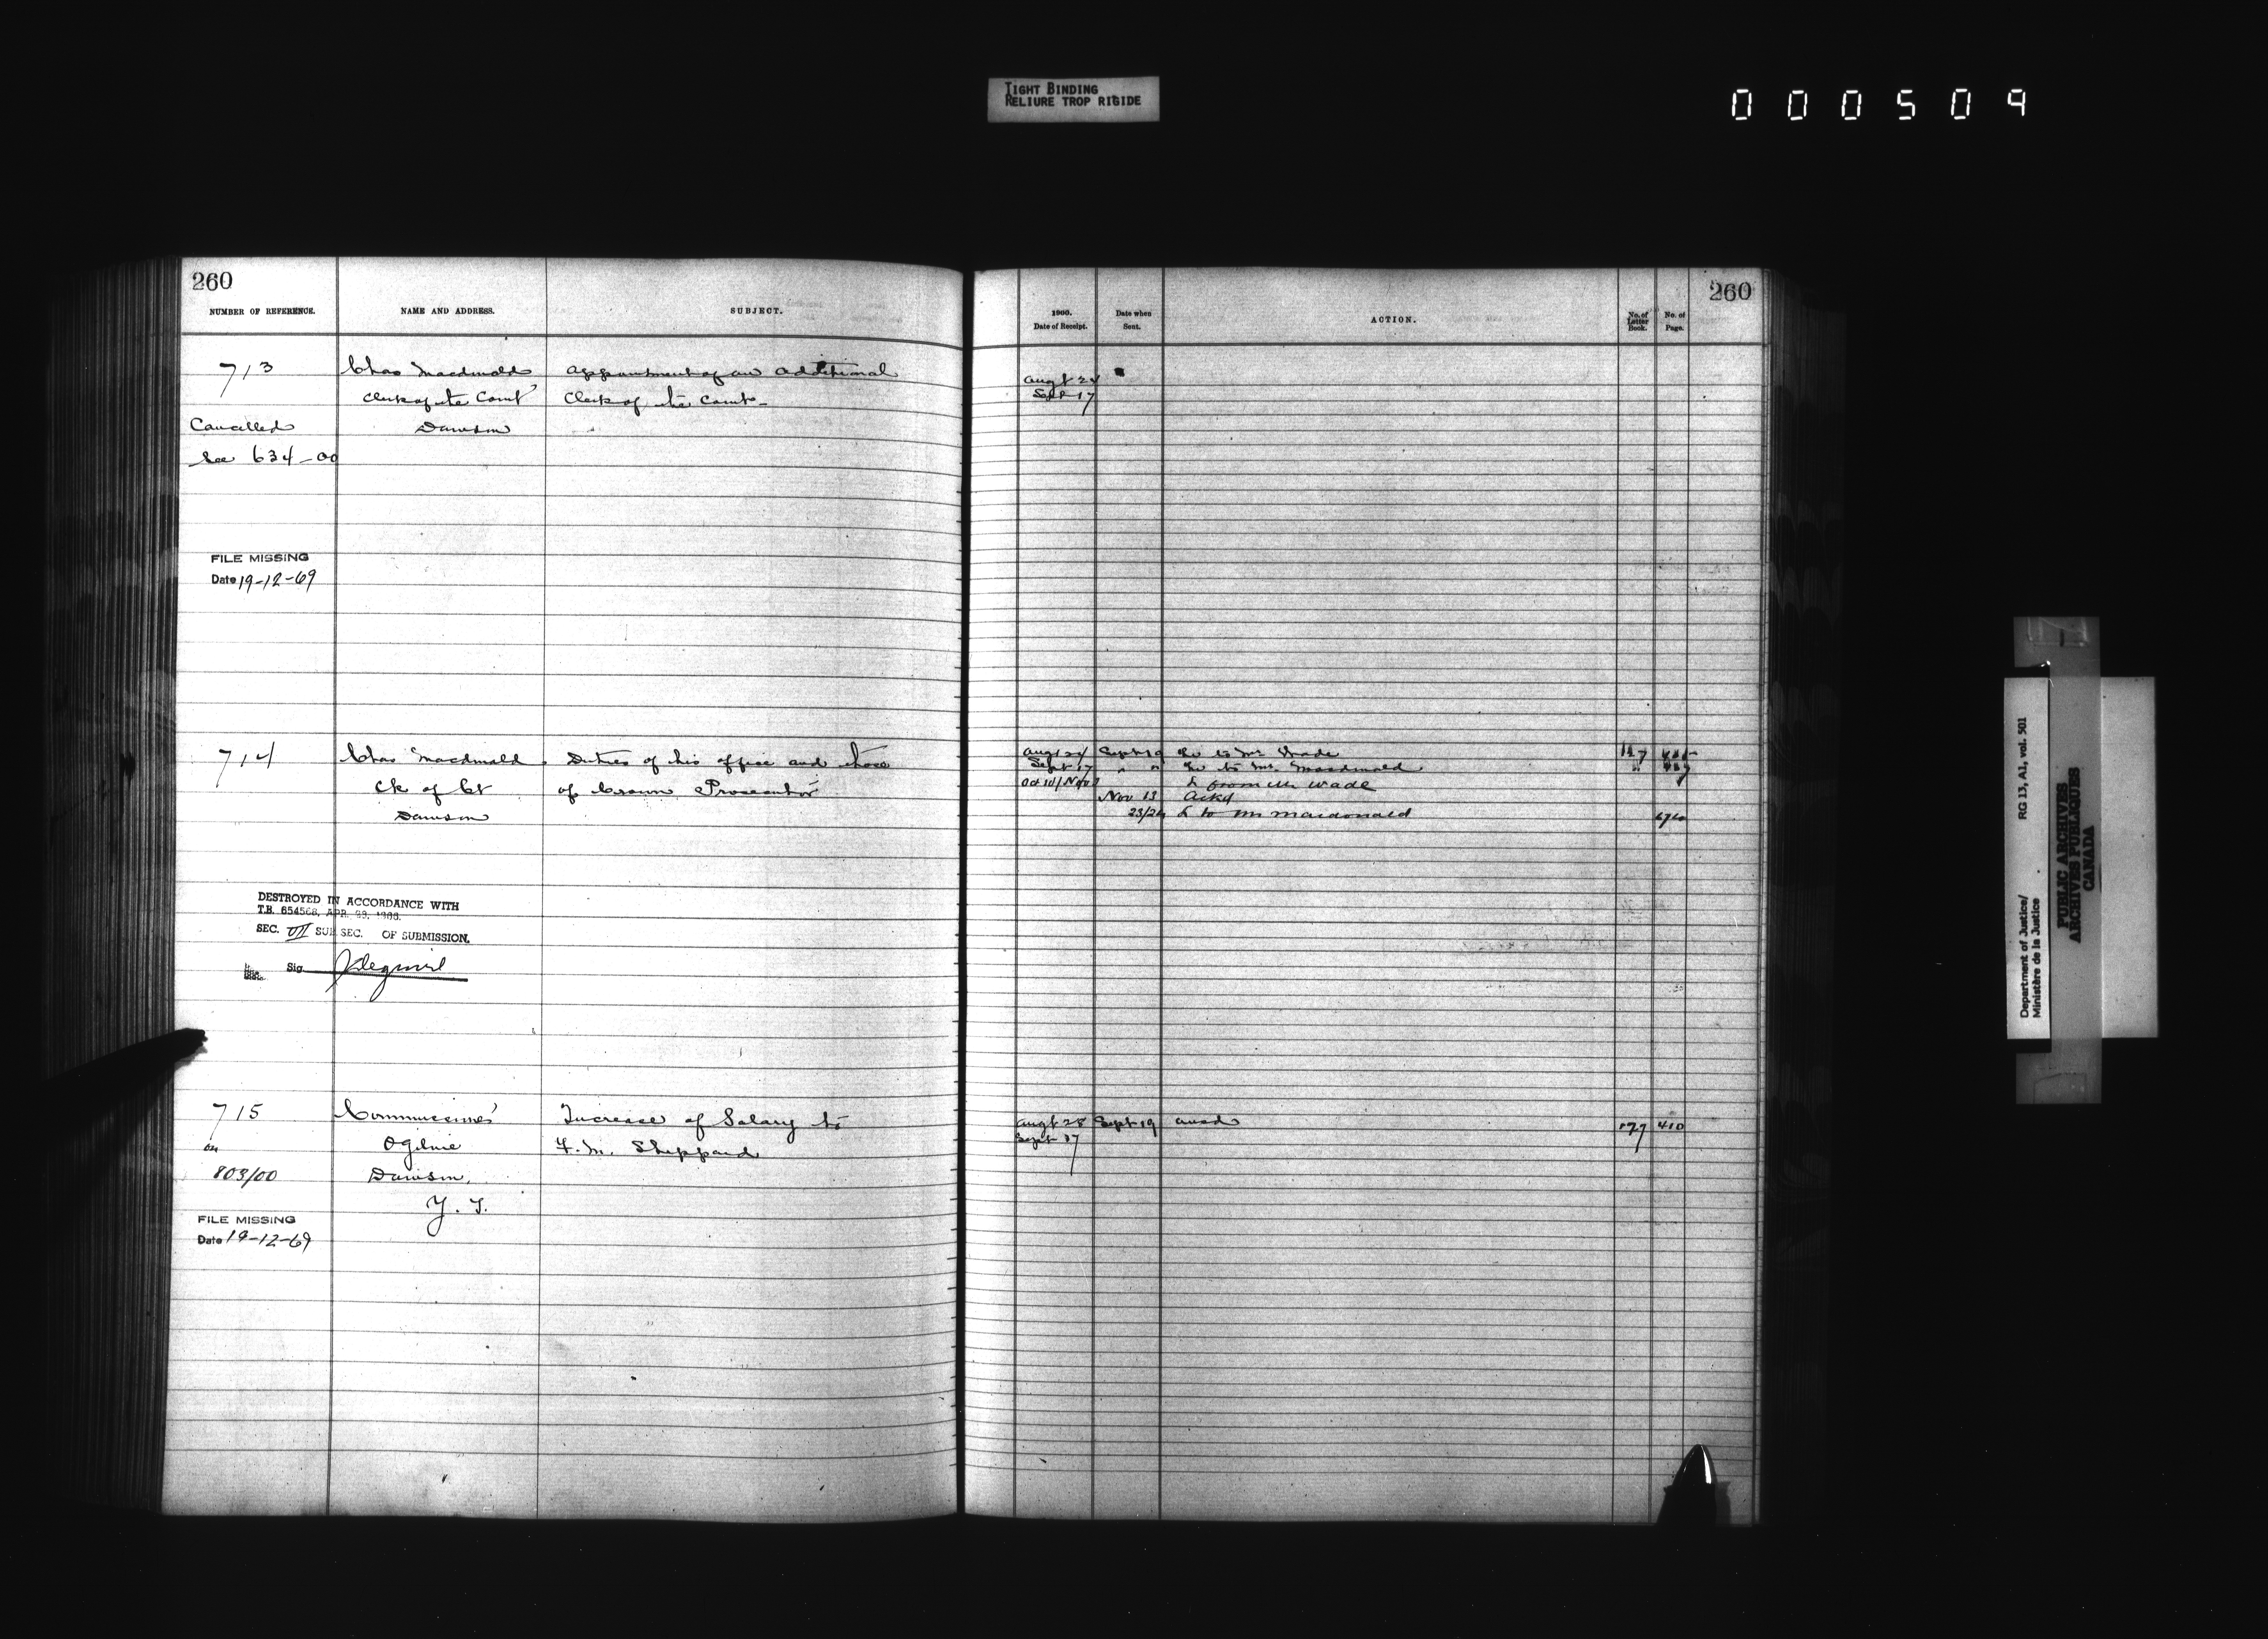 TIGHT BINDING
RELIURE TROP RIGIDE
000509
260
NUMBER OF REFERENCE. NAME AND ADDRESS. SUBJECT.
713 Chas Macdonald appointment of an additional
Clerk of the Court Clerk of the Court
Cancelled Dawson
See 634-00
FILE MISSING
Date 19-12-69
714 Chas Macdonald Duties of his office and those
Ck of Ct of Crown Prosecutor
Dawson
DESTROYED IN ACCORDANCE WITH
T.B. 654568, APR.
SEC. VII SUB SEC. OF SUBMISSION.
Sig
715 Commissioner Increase of Salary to
on Ogilvie F. M. Sheppard
803/00 Dawson,
Y. T.
FILE MISSING
Date 19-12-69
260
1900.
Date of Receipt. Date when Sent. ACTION. No. of Letter Book. No. of Page.
Augt 24
Sept 17
Augt 24 Sept 19 to Mr Wade
Sept 17 " " to Mr. Macdonald
Oct 10/Nov L from Mr Wade
Nov 13 Ackd
23/24 L to Mr Macdonald
Augt 28 Sept 19 410
Sept 17
Department of Justice/ RG 13, A1, vol. 501
Ministère de la Justice
PUBLIC ARCHIVES
ARCHIVES PUBLIQUES
CANADA